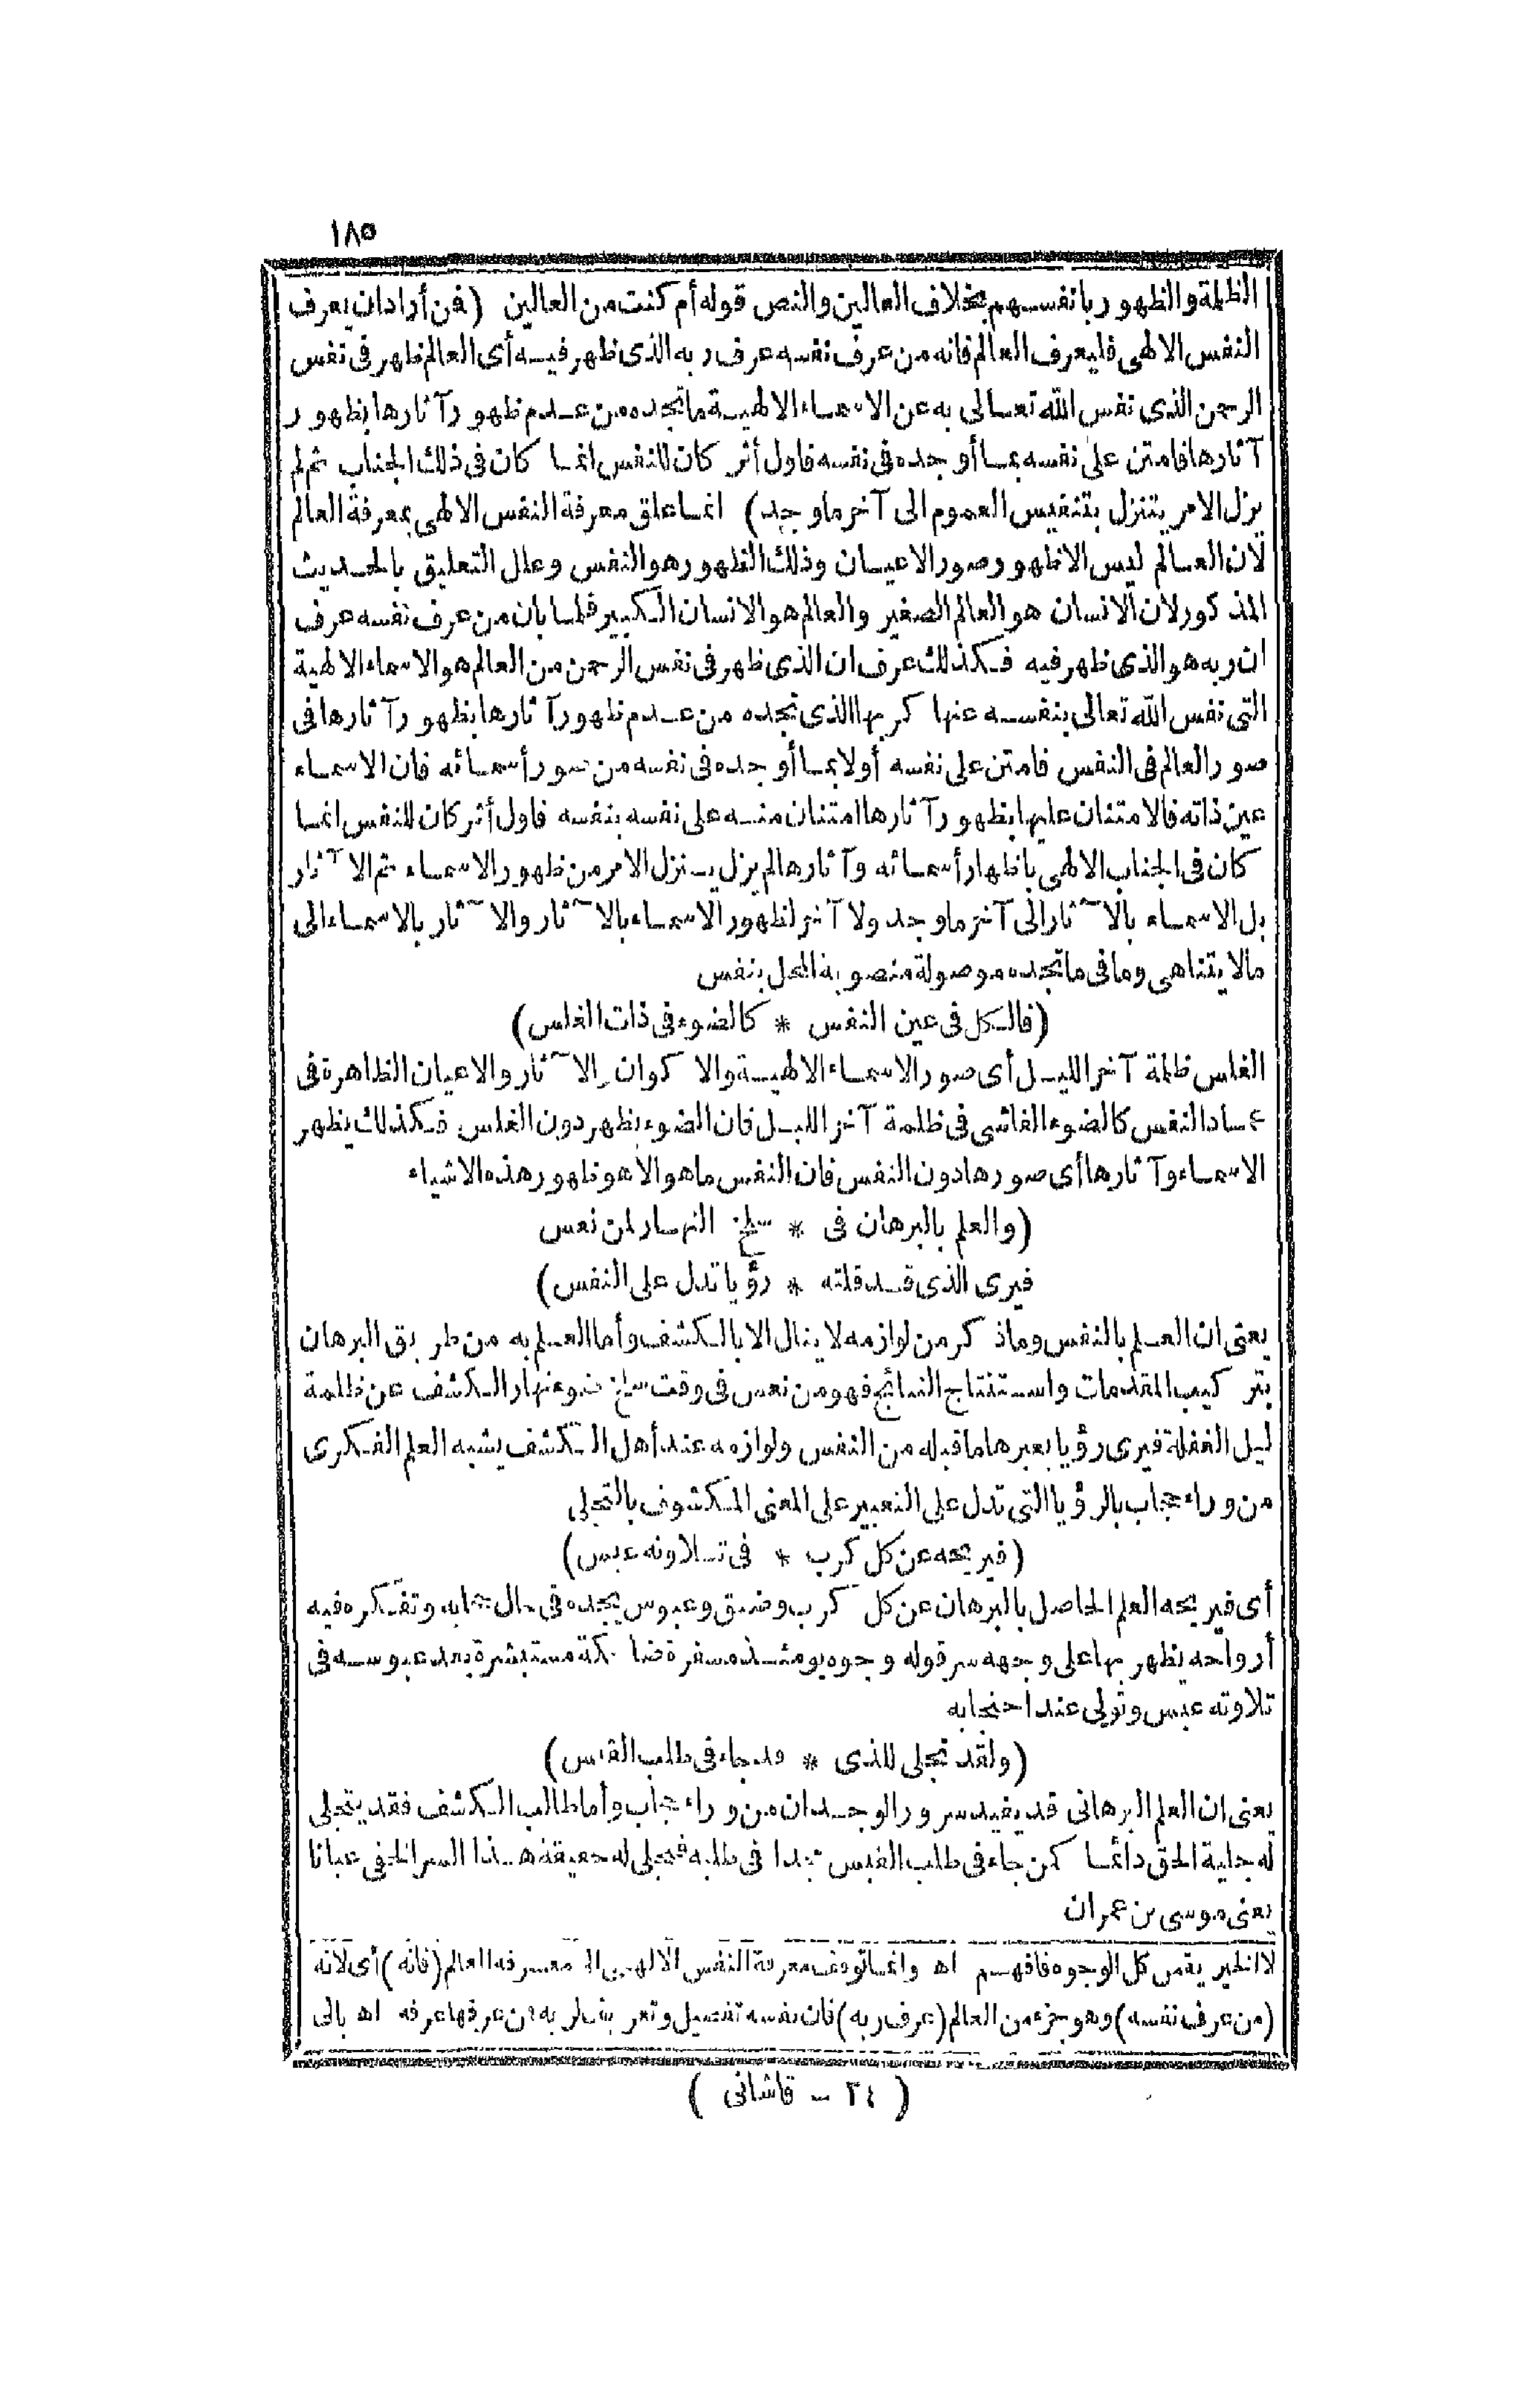 ١٨٥
الظلمة والظهور بانفسهم بخلاف العالين والنص قوله أم كنت من العالين (فمن أراد ان يعرف
النفس الالهى فليعرف العالم فانه من عرف نفسه عرف ربه الذى ظهر فيه أى العالم ظهر فى نفس
الرحمن الذى نفس الله تعالى به عن الاسماء الالهية ما تجده من عدم ظهور آثارها بظهور
آثارها فامتن على نفسه بما أوجده فى نفسه فاول أثر كان للنفس انما كان فى ذلك الجناب ثم لم
يزل الامر يتنزل بتنفيس العموم الى آخر ما وجد) انما علق معرفة النفس الالهى بمعرفة العالم
لان العالم ليس الا ظهور صور الاعيان وذلك الظهور هو النفس وعلل التعليق بالحديث
المذكور لان الانسان هو العالم الصغير والعالم هو الانسان الكبير فلما بان من عرف نفسه عرف
ان ربه هو الذى ظهر فيه فكذلك عرف ان الذى ظهر فى نفس الرحمن من العالم هو الاسماء الالهية
التى نفس الله تعالى بنفسه عنها كربها الذى تجده من عدم ظهور آثارها بظهور آثارها فى
صور العالم فى النفس فامتن على نفسه أولا بما أوجده فى نفسه من صور أسمائه فان الاسماء
عين ذاته فالامتنان عليها بظهور آثارها امتنان منه على نفسه بنفسه فاول أثر كان للنفس انما
كان فى الجناب الالهى باظهار أسمائه وآثارها لم يزل يتنزل الامر من ظهور الاسماء ثم الآثار
بل الاسماء بالآثار الى آخر ما وجد ولا آخر لظهور الاسماء بالآثار والآثار بالاسماء الى
مالا يتناهى وما فى ما تجده موصولة منصوبة المحل بنفس
(فالكل فى عين النفس * كالضوء فى ذات الغلس)
الغلس ظلمة آخر الليل أى صور الاسماء الالهية والاكوان والآثار والاعيان الظاهرة فى
عماد النفس كالضوء الفاشى فى ظلمة آخر الليل فان الضوء يظهر دون الغلس فكذلك يظهر
الاسماء وآثارها أى صورها دون النفس فان النفس ما هو الا هو ظهور هذه الاشياء
(والعلم بالبرهان فى * سلخ النهار لمن نعس
فيرى الذى قد قلته * رؤيا تدل على النفس)
يعنى ان العلم بالنفس وما ذكر من لوازمه لا ينال الا بالكشف وأما العلم به من طريق البرهان
بتركيب المقدمات واستنتاج النتائج فهو من نعس فى وقت سلخ ضوء نهار الكشف عن ظلمة
ليل الغفلة فيرى رؤيا يعبرها ما قبله من النفس ولوازمه عند أهل الكشف يشبه العلم الفكرى
من وراء حجاب بالرؤيا التى تدل على التعبير على المعنى المكشوف بالتجلى
(فيريحه عن كل كرب * فى تلاوته عبس)
أى فيريحه العلم الحاصل بالبرهان عن كل كرب وضيق وعبوس يجده فى حال حجابه وتفكره فيه
أرواحه يظهر بها على وجهه سر قوله وجوه يومئذ مسفرة ضاحكة مستبشرة بعد عبوسه فى
تلاوته عبس وتولى عند احتجابه
(ولقد تجلى للذى * قد جاء فى طلب القبس)
يعنى ان العلم البرهانى قد يفيد سرور الوجدان من وراء حجاب وأما طالب الكشف فقد يتجلى
له جلية الحق دائما كمن جاء فى طلب القبس مجدا فى طلبه فتجلى له حقيقة هذا السر الخفى عيانا
يعنى موسى بن عمران
لا الخير يقمن كل الوجوه فافهم اه وانما توقف معرفة النفس الالهى الى معرفة العالم (فانه) أى لانه
(من عرف نفسه) وهو جزء من العالم (عرف ربه) فان نفسه تفصيل وتعريف لربه فمن عرفها عرفه اه بالى
( ٢٤ - قاشانى )